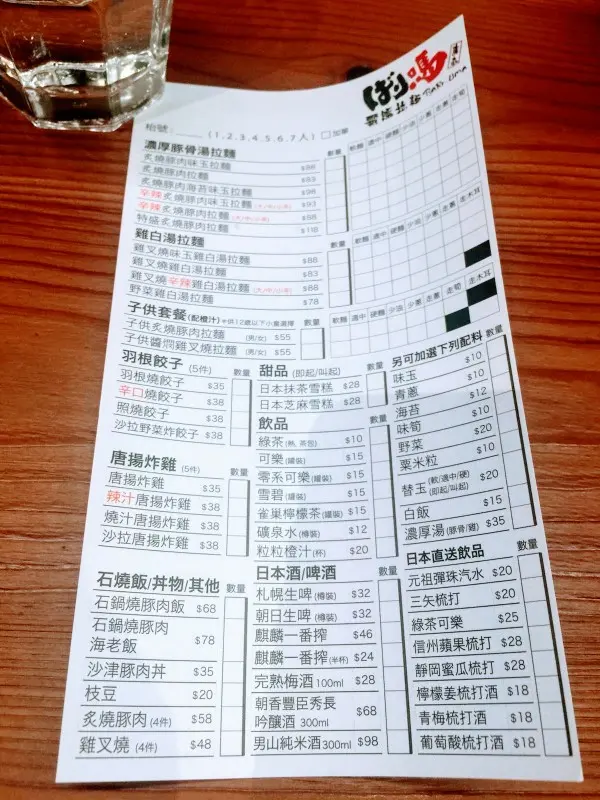 ばり嗎
Bari-Uma
枱號：____ (1,2,3,4,5,6,7人) □加單
濃厚豚骨湯拉麵 數量 軟麵 適中 硬麵 少淡 少蔥 走蔥 走筍
炙燒豚肉味玉拉麵 $88
炙燒豚肉拉麵 $83
炙燒豚肉海苔味玉拉麵 $98
辛辣炙燒豚肉味玉拉麵 (大/中/小辛) $93
辛辣炙燒豚肉拉麵 (大/中/小辛) $88
特盛炙燒豚肉拉麵 $118
雞白湯拉麵 數量 軟麵 適中 硬麵 少淡 少蔥 走蔥 走木耳
雞叉燒味玉雞白湯拉麵 $88
雞叉燒雞白湯拉麵 $83
雞叉燒辛辣雞白湯拉麵 (大/中/小辛) $88
野菜雞白湯拉麵 $78
子供套餐 (配橙汁) *供12歲以下小童選擇 數量 軟麵 適中 硬麵 少淡 少蔥 走蔥 走筍 走木耳
子供炙燒豚肉拉麵 (男/女) $55
子供醬燜雞叉燒拉麵 (男/女) $55
羽根餃子 (5件) 數量
羽根燒餃子 $35
辛口燒餃子 $38
照燒餃子 $38
沙拉野菜炸餃子 $38
唐揚炸雞 (5件) 數量
唐揚炸雞 $35
辣汁唐揚炸雞 $38
燒汁唐揚炸雞 $38
沙拉唐揚炸雞 $38
石燒飯/丼物/其他 數量
石鍋燒豚肉飯 $68
石鍋燒豚肉
海老飯 $78
沙津豚肉丼 $35
枝豆 $20
炙燒豚肉 (4件) $58
雞叉燒 (4件) $48
甜品 (即起/叫起) 數量
日本抹茶雪糕 $28
日本芝麻雪糕 $28
飲品 數量
綠茶 (熱, 茶包) $10
可樂 (罐裝) $15
零系可樂 (罐裝) $15
雪碧 (罐裝) $15
雀巢檸檬茶 (罐裝) $15
礦泉水 (樽裝) $12
粒粒橙汁 (杯) $20
日本酒/啤酒 數量
札幌生啤 (樽裝) $32
朝日生啤 (樽裝) $32
麒麟一番搾 $46
麒麟一番搾 (半杯) $24
完熟梅酒 100ml $28
朝香豐臣秀長
吟釀酒 300ml $68
男山純米酒 300ml $98
另可加選下列配料 數量
味玉 $10
青蔥 $10
海苔 $12
味筍 $10
野菜 $20
粟米粒 $10
替玉 (軟/適中/硬) (即起/叫起) $20
白飯 $15
濃厚湯 (豚骨/雞) $35
日本直送飲品 數量
元祖彈珠汽水 $20
三矢梳打 $20
綠茶可樂 $25
信州蘋果梳打 $28
靜岡蜜瓜梳打 $28
檸檬姜梳打酒 $18
青梅梳打酒 $18
葡萄酸梳打酒 $18